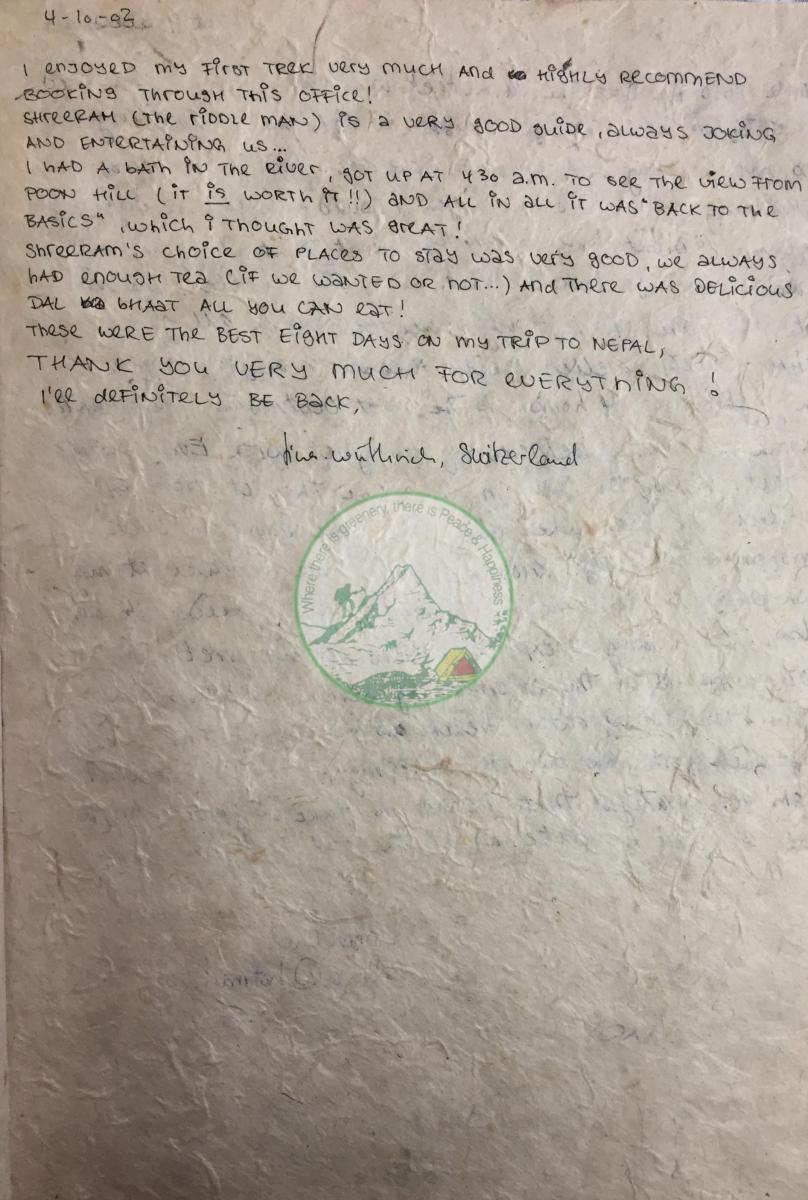 4-10-02
I enjoyed my first trek very much and highly recommend
booking through this office!
Shreeram (the riddle man) is a very good guide, always joking
and entertaining us...
I had a bath in the river, got up at 430 a.m. to see the view from
Poon Hill (it is worth it!!) and all in all it was "back to the
basics", which i thought was great!
Shreeram's choice of places to stay was very good, we always
had enough tea (if we wanted or not...) and there was delicious
dal bhaat all you can eat!
These were the best eight days on my trip to Nepal,
THANK YOU VERY MUCH FOR EVERYTHING!
I'll definitely be back,
Wüthrich, Switzerland
Where there is greenery, there is Peace & Happiness